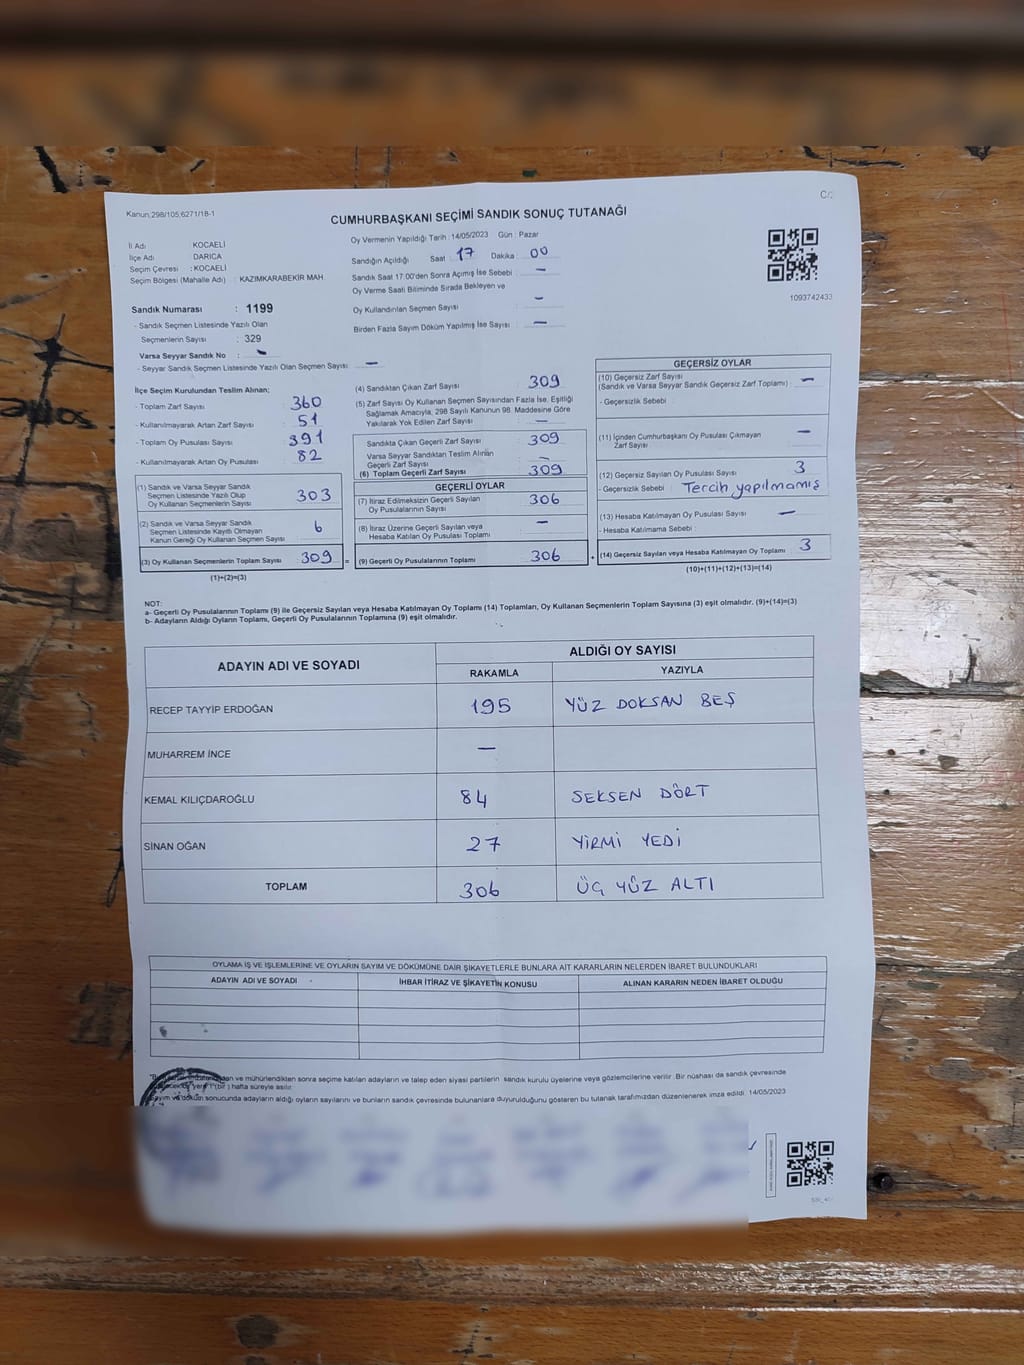 Kanun:298/105;6271/18-1
CUMHURBAŞKANI SEÇİMİ SANDIK SONUÇ TUTANAĞI
İl Adı KOCAELİ
İlçe Adı DARICA
Seçim Çevresi : KOCAELİ
Seçim Bölgesi (Mahalle Adı) : KAZIMKARABEKİR MAH.
Sandık Numarası : 1199
- Sandık Seçmen Listesinde Yazılı Olan
Seçmenlerin Sayısı : 329
Varsa Seyyar Sandık No : -
- Seyyar Sandık Seçmen Listesinde Yazılı Olan Seçmen Sayısı : -
Oy Vermenin Yapıldığı Tarih : 14/05/2023 Gün : Pazar
Sandığın Açıldığı Saat : 17 Dakika : 00
Sandık Saat 17:00'den Sonra Açımış İse Sebebi : -
Oy Verme Saati Bitiminde Sırada Bekleyen ve
Oy Kullandırılan Seçmen Sayısı : -
Birden Fazla Sayım Döküm Yapılmış İse Sayısı : -
1093742433
İlçe Seçim Kurulundan Teslim Alınan;
- Toplam Zarf Sayısı : 360
- Kullanılmayarak Artan Zarf Sayısı : 51
- Toplam Oy Pusulası Sayısı : 391
- Kullanılmayarak Artan Oy Pusulası : 82
(1) Sandık ve Varsa Seyyar Sandık
Seçmen Listesinde Yazılı Olup
Oy Kullanan Seçmenlerin Sayısı : 303
(2) Sandık ve Varsa Seyyar Sandık
Seçmen Listesinde Kayıtlı Olmayan
Kanun Gereği Oy Kullanan Seçmen Sayısı : 6
(3) Oy Kullanan Seçmenlerin Toplam Sayısı : 309 =
(1)+(2)=(3)
(4) Sandıktan Çıkan Zarf Sayısı : 309
(5) Zarf Sayısı Oy Kullanan Seçmen Sayısından Fazla İse, Eşitliği
Sağlamak Amacıyla; 298 Sayılı Kanunun 98. Maddesine Göre
Yakılarak Yok Edilen Zarf Sayısı : -
Sandıkta Çıkan Geçerli Zarf Sayısı : 309
Varsa Seyyar Sandıktan Teslim Alınan
Geçerli Zarf Sayısı : -
(6) Toplam Geçerli Zarf Sayısı : 309
GEÇERLİ OYLAR
(7) İtiraz Edilmeksizin Geçerli Sayılan
Oy Pusulalarının Sayısı : 306
(8) İtiraz Üzerine Geçerli Sayılan veya
Hesaba Katılan Oy Pusulası Toplamı : -
(9) Geçerli Oy Pusulalarının Toplamı : 306 +
GEÇERSİZ OYLAR
(10) Geçersiz Zarf Sayısı
(Sandık ve Varsa Seyyar Sandık Geçersiz Zarf Toplamı) : -
- Geçersizlik Sebebi :
(11) İçinden Cumhurbaşkanı Oy Pusulası Çıkmayan
Zarf Sayısı : -
(12) Geçersiz Sayılan Oy Pusulası Sayısı : 3
- Geçersizlik Sebebi : Tercih yapılmamış
(13) Hesaba Katılmayan Oy Pusulası Sayısı : -
- Hesaba Katılmama Sebebi :
(14) Geçersiz Sayılan veya Hesaba Katılmayan Oy Toplamı : 3
(10)+(11)+(12)+(13)=(14)
NOT:
a- Geçerli Oy Pusulalarının Toplamı (9) ile Geçersiz Sayılan veya Hesaba Katılmayan Oy Toplamı (14) Toplamları, Oy Kullanan Seçmenlerin Toplam Sayısına (3) eşit olmalıdır. (9)+(14)=(3)
b- Adayların Aldığı Oyların Toplamı, Geçerli Oy Pusulalarının Toplamına (9) eşit olmalıdır.
ADAYIN ADI VE SOYADI ALDIĞI OY SAYISI
RAKAMLA YAZIYLA
RECEP TAYYİP ERDOĞAN 195 YÜZ DOKSAN BEŞ
MUHARREM İNCE -
KEMAL KILIÇDAROĞLU 84 SEKSEN DÖRT
SİNAN OĞAN 27 YİRMİ YEDİ
TOPLAM 306 ÜÇ YÜZ ALTI
OYLAMA İŞ VE İŞLEMLERİNE VE OYLARIN SAYIM VE DÖKÜMÜNE DAİR ŞİKAYETLERLE BUNLARA AİT KARARLARIN NELERDEN İBARET BULUNDUKLARI
ADAYIN ADI VE SOYADI İHBAR İTİRAZ VE ŞİKAYETİN KONUSU ALINAN KARARIN NEDEN İBARET OLDUĞU
ve mühürlendikten sonra seçime katılan adayların ve talep eden siyasi partilerin sandık kurulu üyelerine veya gözlemcilerine verilir. Bir nüshası da sandık çevresinde
yere 1 (bir) hafta süreyle asılır.
Sayım ve döküm sonucunda adayların aldığı oyların sayılarını ve bunların sandık çevresinde bulunanlara duyurulduğunu gösteren bu tutanak tarafımızdan düzenlenerek imza edildi. 14/05/2023